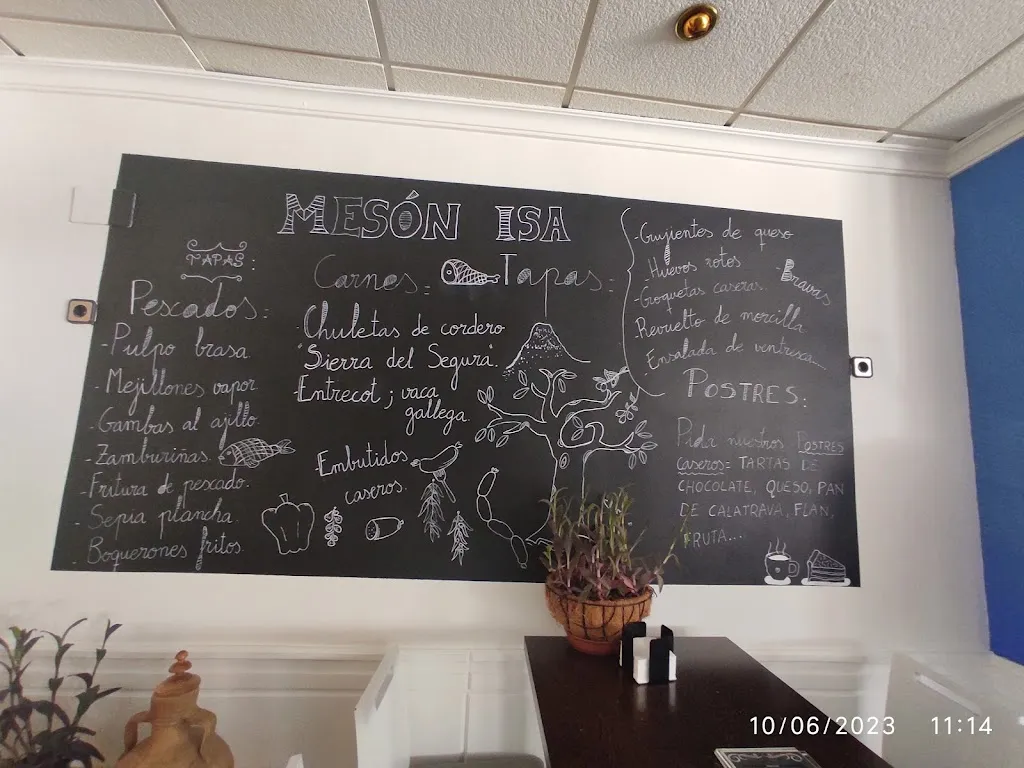 MESÓN ISA
TAPAS:
Pescados:
-Pulpo brasa
-Mejillones vapor
-Gambas al ajillo
-Zamburiñas
-Fritura de pescado.
-Sepia plancha.
-Boquerones fritos.
Carnes:
-Chuletas de cordero
"Sierra del Segura".
-Entrecot; vaca
gallega.
-Embutidos
caseros.
Tapas:
-Crujientes de queso
-Huevos rotos
-Bravas
-Croquetas caseras.
-Revuelto de morcilla
-Ensalada de ventresca
POSTRES:
Pida nuestros POSTRES
caseros= TARTAS DE
CHOCOLATE, QUESO, PAN
DE CALATRAVA, FLAN,
FRUTA....
10/06/2023 11:14